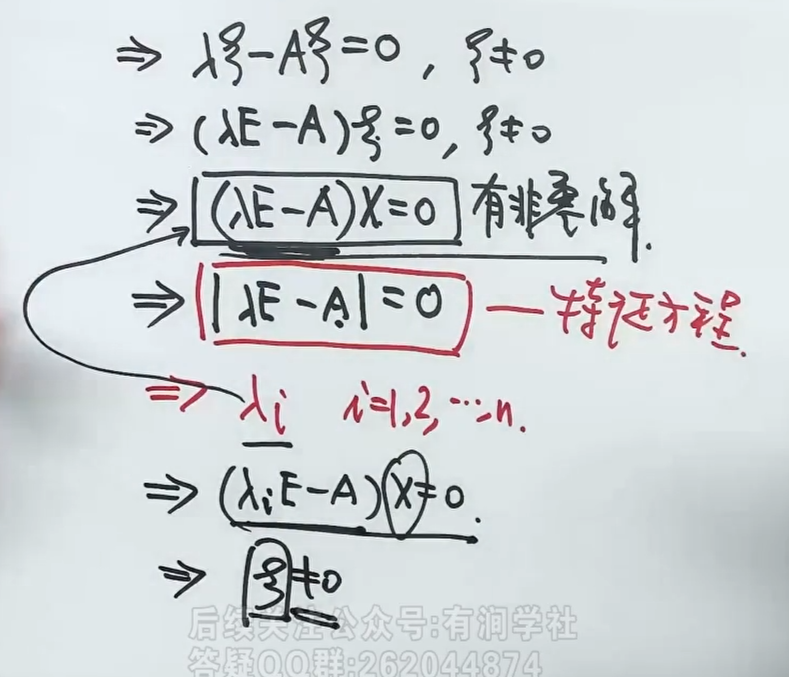 ⇒ λξ-Aξ=0, ξ≠0
⇒ (λE-A)ξ=0, ξ≠0
⇒ (λE-A)X=0 有非零解.
⇒ |λE-A|=0 —特征方程.
⇒ λi i=1,2,…,n.
⇒ (λiE-A)X=0.
⇒ ξ≠0
后续关注公众号:有润学社
答疑QQ群:262044874